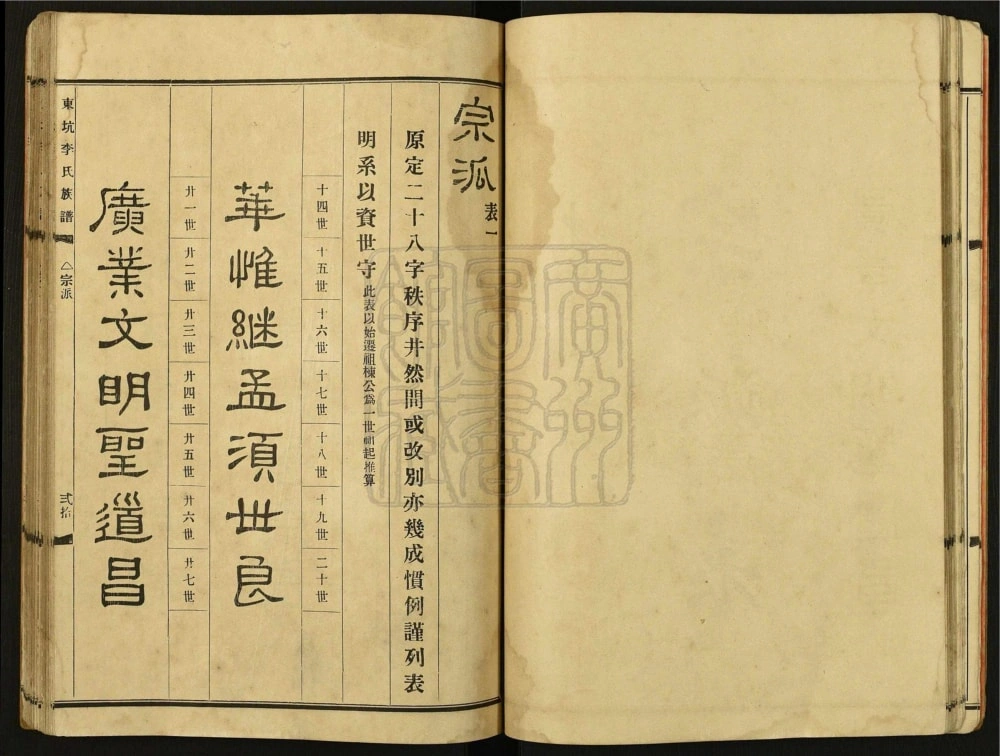 宗派 表一
原定二十八字秩序井然間或改別亦幾成慣例謹列表
明系以資世守 此表以始遷祖棟公為一世祖起推算
十四世 十五世 十六世 十七世 十八世 十九世 二十世
華惟繼孟須世良
廿一世 廿二世 廿三世 廿四世 廿五世 廿六世 廿七世
廣業文明聖道昌
東坑李氏族譜 △宗派 弍拾
廣州
圖書
館藏